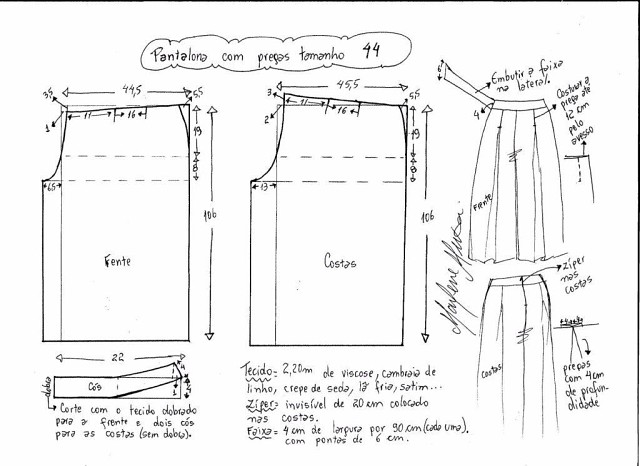 Pantalona com pregas tamanho 44
44,5
3,5
5,5
1
11
16
19
8
6,5
106
Frente
45,5
3
5,5
2
11
16
19
8
13
106
Costas
6
Embutir a faixa
na lateral.
4
Costurar a
prega até
12 cm
pelo
avesso
Frente
Marlene Mukai
zíper
nas
costas
costas
pregas
com 4 cm
de profun-
didade
22
dobra
Cós
4
1
Corte com o tecido dobrado
para a frente e dois cós
para as costas (sem dobra).
Tecido = 2,20m de viscose, cambraia de
linho, crepe de seda, lã fria, satim...
Zíper = invisível de 20 cm colocado
nas costas.
Faixa = 4 cm de largura por 90 cm (cada uma).
com pontas de 6 cm.